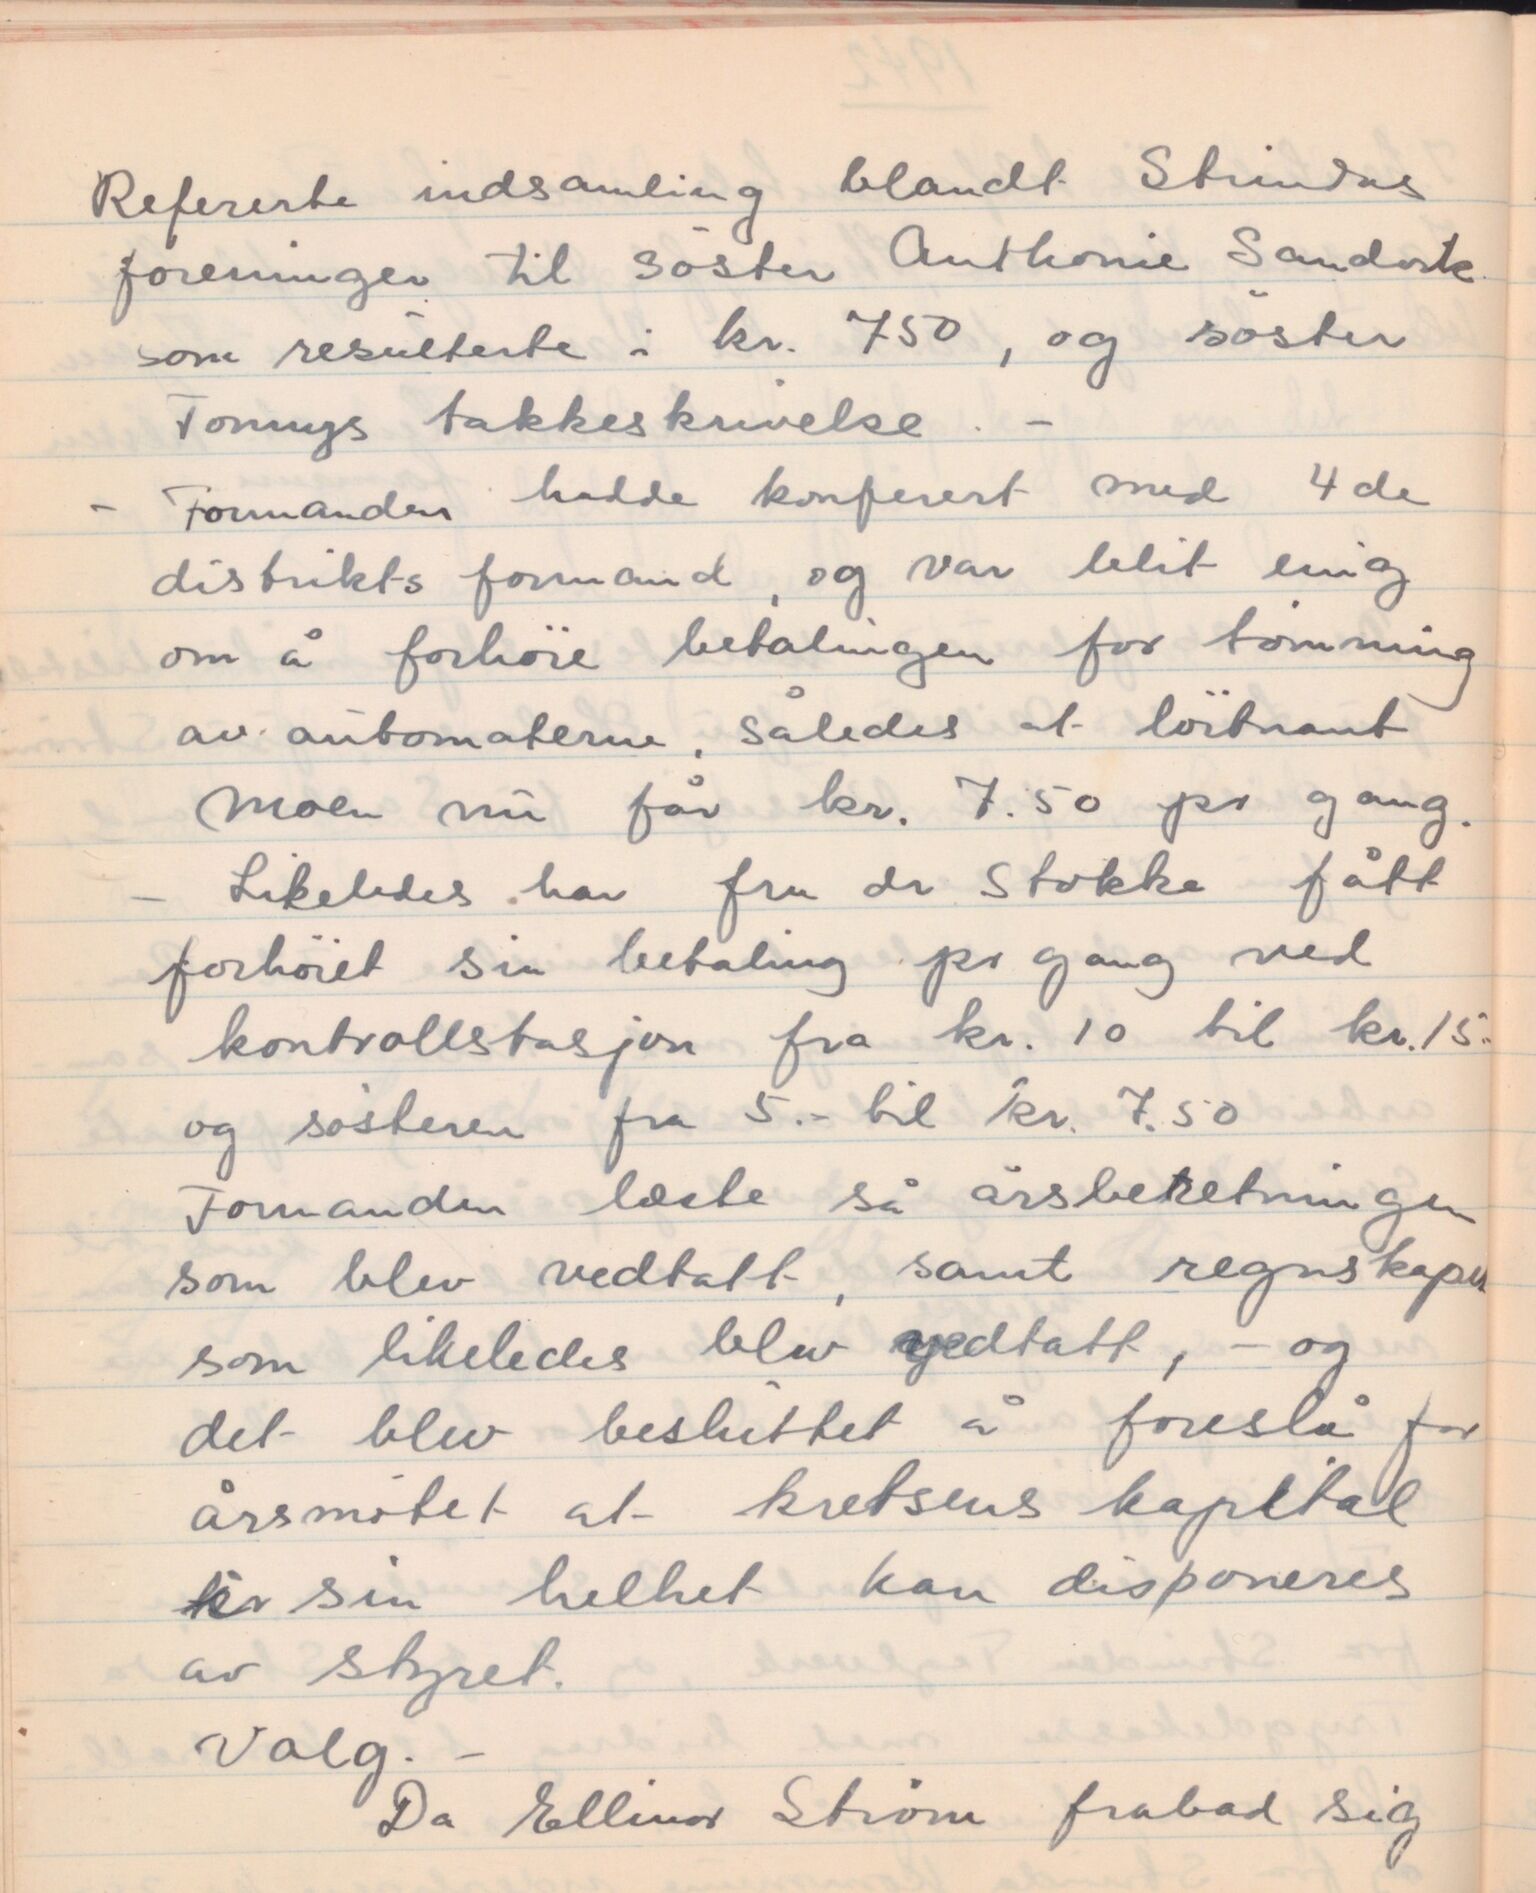 Refererte indsamling blandt Strindas
foreninger til söster Anthonie Sandvik
som resulterte i kr. 750, og söster
Tonnys takkeskrivelse. -
- Formanden hadde konferert med 4de
distrikts formand, og var blit enig
om å forhöie betalingen for tömming
av automaterne, således at löitnant
Moen nu får kr. 7.50 pr gang.
- Likeledes har fru dr Stokke fått
forhöiet sin betaling pr gang ved
kontrollstasjon fra kr. 10 til kr. 15.-
og sösteren fra 5.- til kr. 7.50
Formanden læste så årsberetningen
som blev vedtatt, samt regnskapet
som likeledes blev vedtatt, - og
det blev besluttet å foreslå for
årsmötet at kretsens kapital
i sin helhet kan disponeres
av styret.
Valg. -
Da Ellinor Ström frabad sig